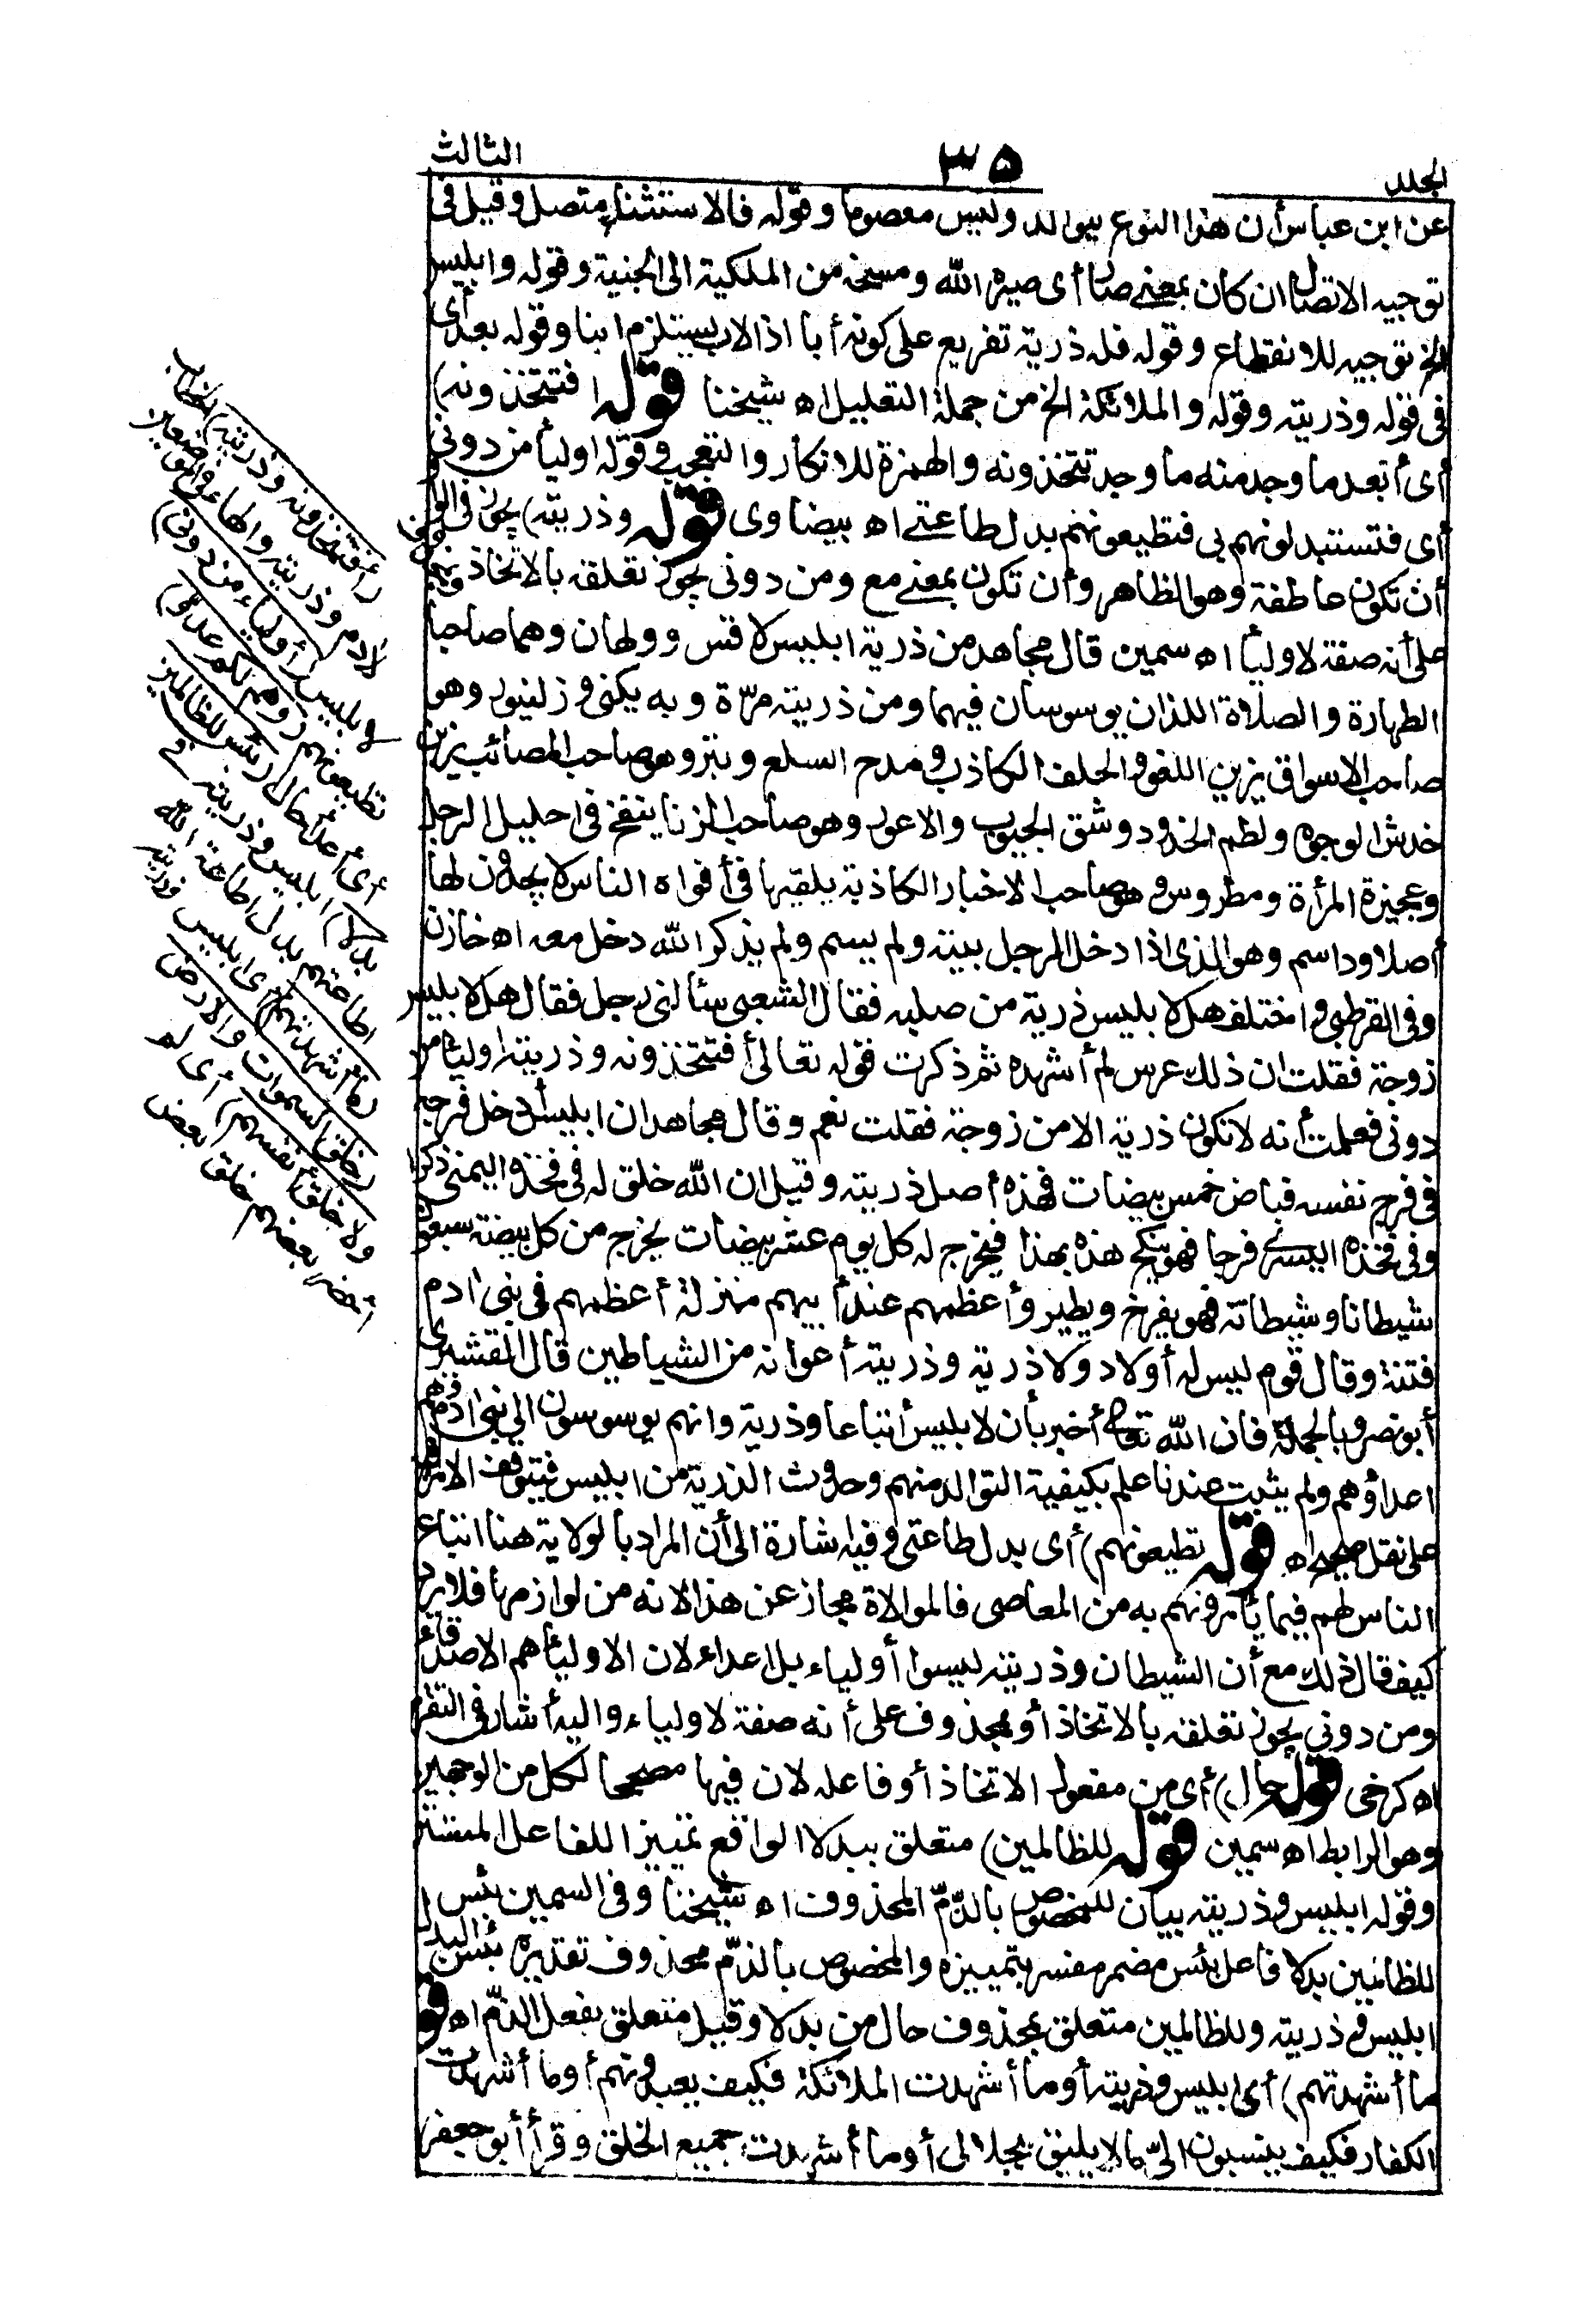 المجلد ٣٥ الثالث
عن ابن عباس أن هذا النوع يتوالد وليس معصوما وقوله فالاستثناء متصل وقيل فى
توجيه الاتصال ان كان بمعنى صار أى صيره الله ومسخه من الملكية الى الجنية وقوله وابليس
الخ توجيه للانقطاع وقوله فله ذرية تفريع على كونه أبا اذ الاب يستلزم ابنا وقوله بعد أى
فى قوله وذريته وقوله والملائكة الخ من جملة التعليل اه شيخنا قوله افتتخذونه)
أى أبعد ما وجد منه ما وجد تتخذونه والهمزة للانكار والتعجب وقوله اولياء من دونى
أى فتستبدلونهم بى فتطيعونهم بدل طاعتى اه بيضاوى قوله وذريته) يجوز فى الواو
أن تكون عاطفة وهو الظاهر وأن تكون بمعنى مع ومن دونى يجوز تعلقه بالاتخاذ وبمحذوف
على أنه صفة لاولياء اه سمين قال مجاهد من ذرية ابليس لاقس وولهان وهما صاحبا
الطهارة والصلاة اللذان يوسوسان فيهما ومن ذريته مرّة وبه يكنى وزلنبور وهو
صاحب الاسواق يزين اللغو والحلف الكاذب ومدح السلع وبتر وهو صاحب المصائب يزين
خدش الوجوه ولطم الخدود وشق الجيوب والاعور وهو صاحب الزنا ينفخ فى احليل الرجل
وعجيزة المرأة ومطروس وهو صاحب الاخبار الكاذبة يلقيها فى أفواه الناس لا يجدون لها
أصلا وداسم وهو الذى اذا دخل الرجل بيته ولم يسم ولم يذكر الله دخل معه اه خازن
وفى القرطبى واختلف هل لابليس ذرية من صلبه فقال الشعبى سألنى رجل فقال هل لابليس
زوجة فقلت ان ذلك عرس لم أشهده ثم ذكرت قوله تعالى أفتتخذونه وذريته اولياء من
دونى فعلمت أنه لا تكون ذرية الا من زوجة فقلت نعم وقال مجاهد ان ابليس أدخل فرجه
فى فرج نفسه فباض خمس بيضات فهذه أصل ذريته وقيل ان الله خلق له فى فخذه اليمنى ذكرا
وفى فخذه اليسرى فرجا فهو ينكح هذه بهذا فيخرج له كل يوم عشر بيضات يخرج من كل بيضة سبعون
شيطانا وشيطانة فهو يفرخ ويطير وأعظمهم عند أبيهم منزلة أعظمهم فى بنى ادم
فتنة وقال قوم ليس له أولاد ولا ذرية وذريته أعوانه من الشياطين قال القشيرى
أبو نصر وبالجملة فان الله تعالى أخبر بأن لابليس أتباعا وذرية وانهم يوسوسون الى بنى ادم وهم
اعداؤهم ولم يثبت عندنا علم بكيفية التوالد منهم وحدوث الذرية من ابليس فيتوقف الامر فيه
على نقل صحيح اه قوله تطيعونهم) أى بدل طاعتى وفيه اشارة الى أن المراد بالولاية هنا اتباع
الناس لهم فيما يأمرونهم به من المعاصى فالموالاة مجاز عن هذا لانه من لوازمها فلا يرد
كيف قال ذلك مع أن الشيطان وذريته ليسوا أولياء بل اعداء لان الاولياء هم الاصدقاء
ومن دونى يجوز تعلقه بالاتخاذ أو بمحذوف على أنه صفة لاولياء واليه أشار فى التقرير
اه كرخى قوله حال) أى من مفعول الاتخاذ أو فاعله لان فيها مصححا لكل من الوجهين
وهو الرابط اه سمين قوله للظالمين) متعلق ببدلا الواقع تمييزا للفاعل المستتر
وقوله ابليس وذريته بيان للمخصوص بالذّمّ المحذوف اه شيخنا وفى السمين بئس
للظالمين بدلا فاعل بئس مضمر مفسر بتمييزه والمخصوص بالذّم محذوف تقديره بئس البدل
ابليس وذريته وللظالمين متعلق بمحذوف حال من بدلا وقيل متعلق بفعل الذّم اه قوله
ما أشهدتهم) أى ابليس وذريته أو ما أشهدت الملائكة فكيف يعبدونهم أو ما أشهدت
الكفار فكيف ينسبون الىّ ما لا يليق بجلالى أو ما أشهدت جميع الخلق وقرأ أبو جعفر
(أفتتخذونه وذريته) الخطاب
لادم وذريته والهاء فى الموضعين
لابليس (أولياء من دونى)
تطيعونهم (وهم لكم عدو)
أى أعداء حال (بئس للظالمين
بدلا) ابليس وذريته فى
اطاعتهم بدل اطاعة الله
(ما أشهدتهم) أى ابليس وذريته
(خلق السموات والارض
ولا خلق أنفسهم) أى لم
أحضر بعضهم خلق بعض